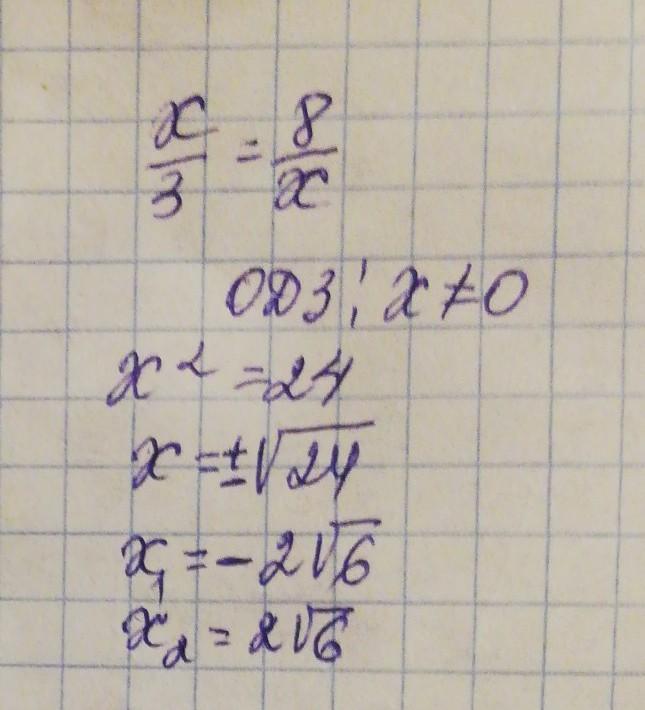 x/3 = 8/x
ОДЗ: x ≠ 0
x² = 24
x = ±√24
x₁ = -2√6
x₂ = 2√6